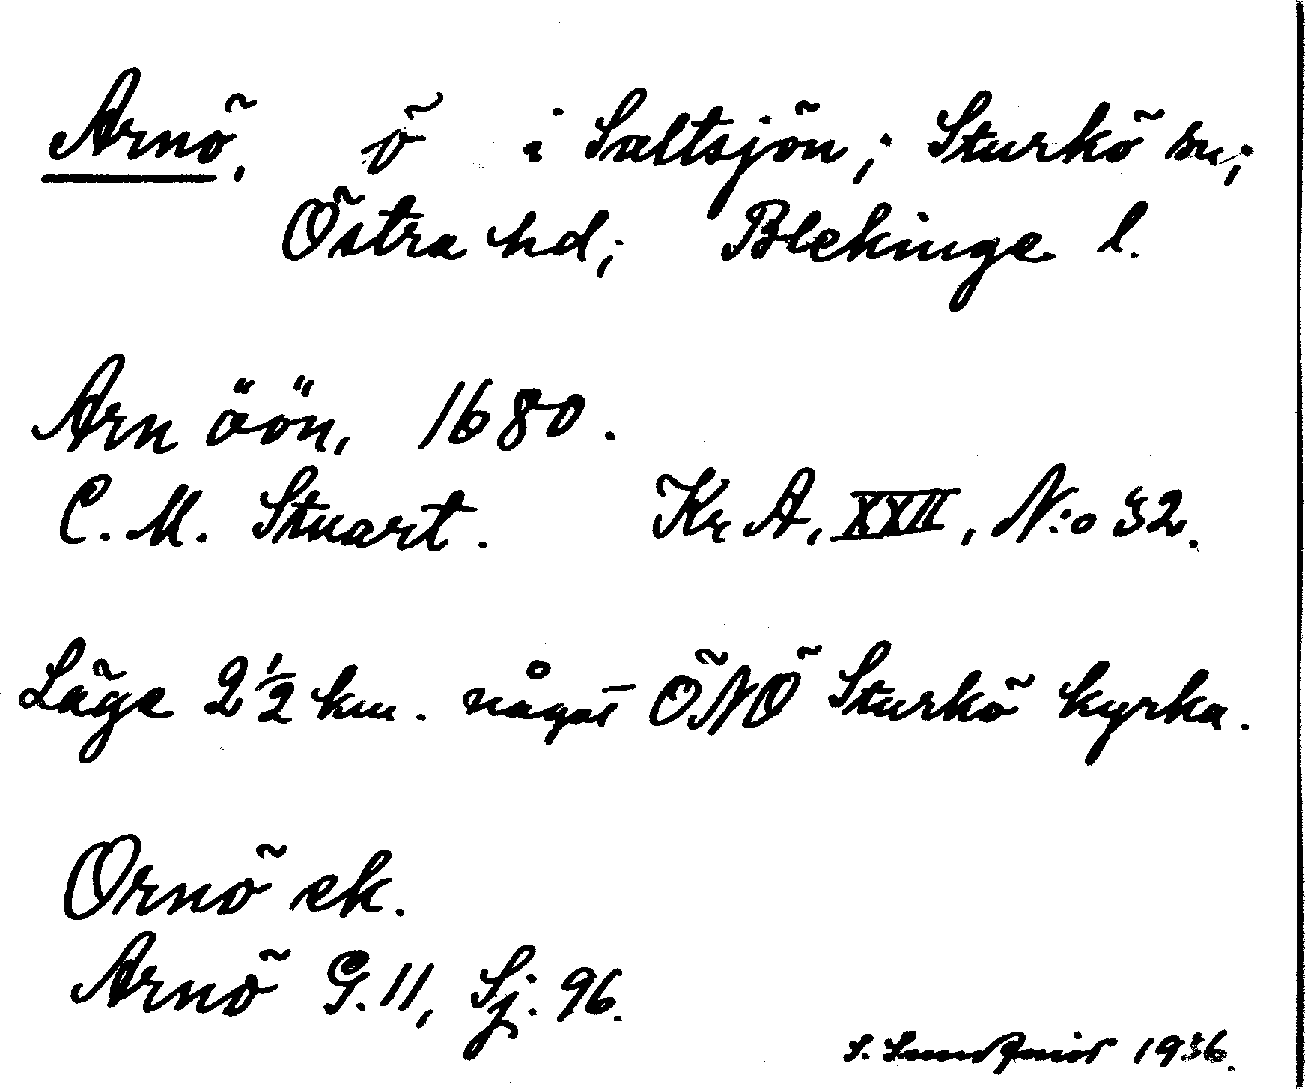 Arnö, ö i Saltsjön; Sturkö sn;
Östra hd; Blekinge l.
Arn äön, 1680.
C. M. Stuart. Kr A, XXII, N:o 32.
Läge 2 1/2 km. något ÖNÖ Sturkö kyrka.
Ornö ek.
Arnö G. 11, Sj. 96.
S. 1936.